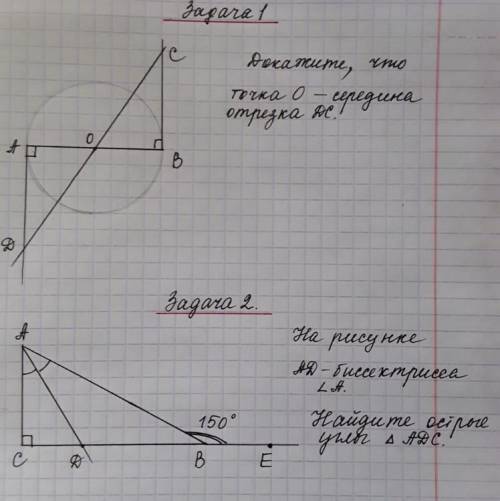 Задача 1
Докажите, что
точка О – середина
отрезка DC.
C
A
O
B
D
Задача 2.
На рисунке
AD – биссектрисса
∠A.
Найдите острые
углы △ ADC.
A
150°
C
D
B
E